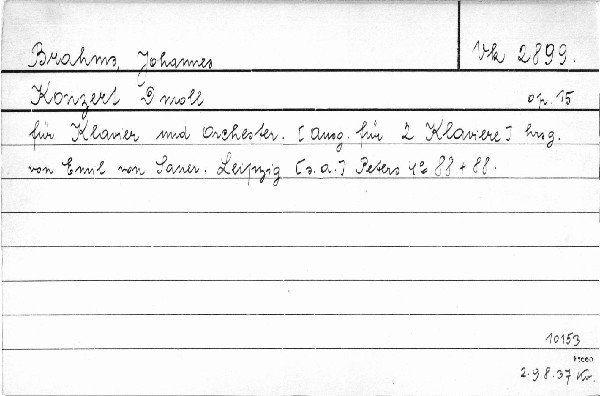 Brahms, Johannes Vk 2899.
Konzert D moll op. 15
für Klavier und Orchester. [Ausg. für 2 Klaviere] hrsg.
von Emil von Sauer. Leipzig [s.a.] Peters 4° 88 + 88.
10153
2.98.37 Kr.